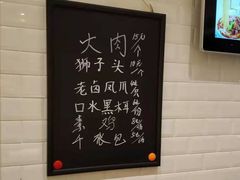 大肉 15元/个
狮子头 10元/个
老卤凤爪
口水黑木耳
素鸡
千张包